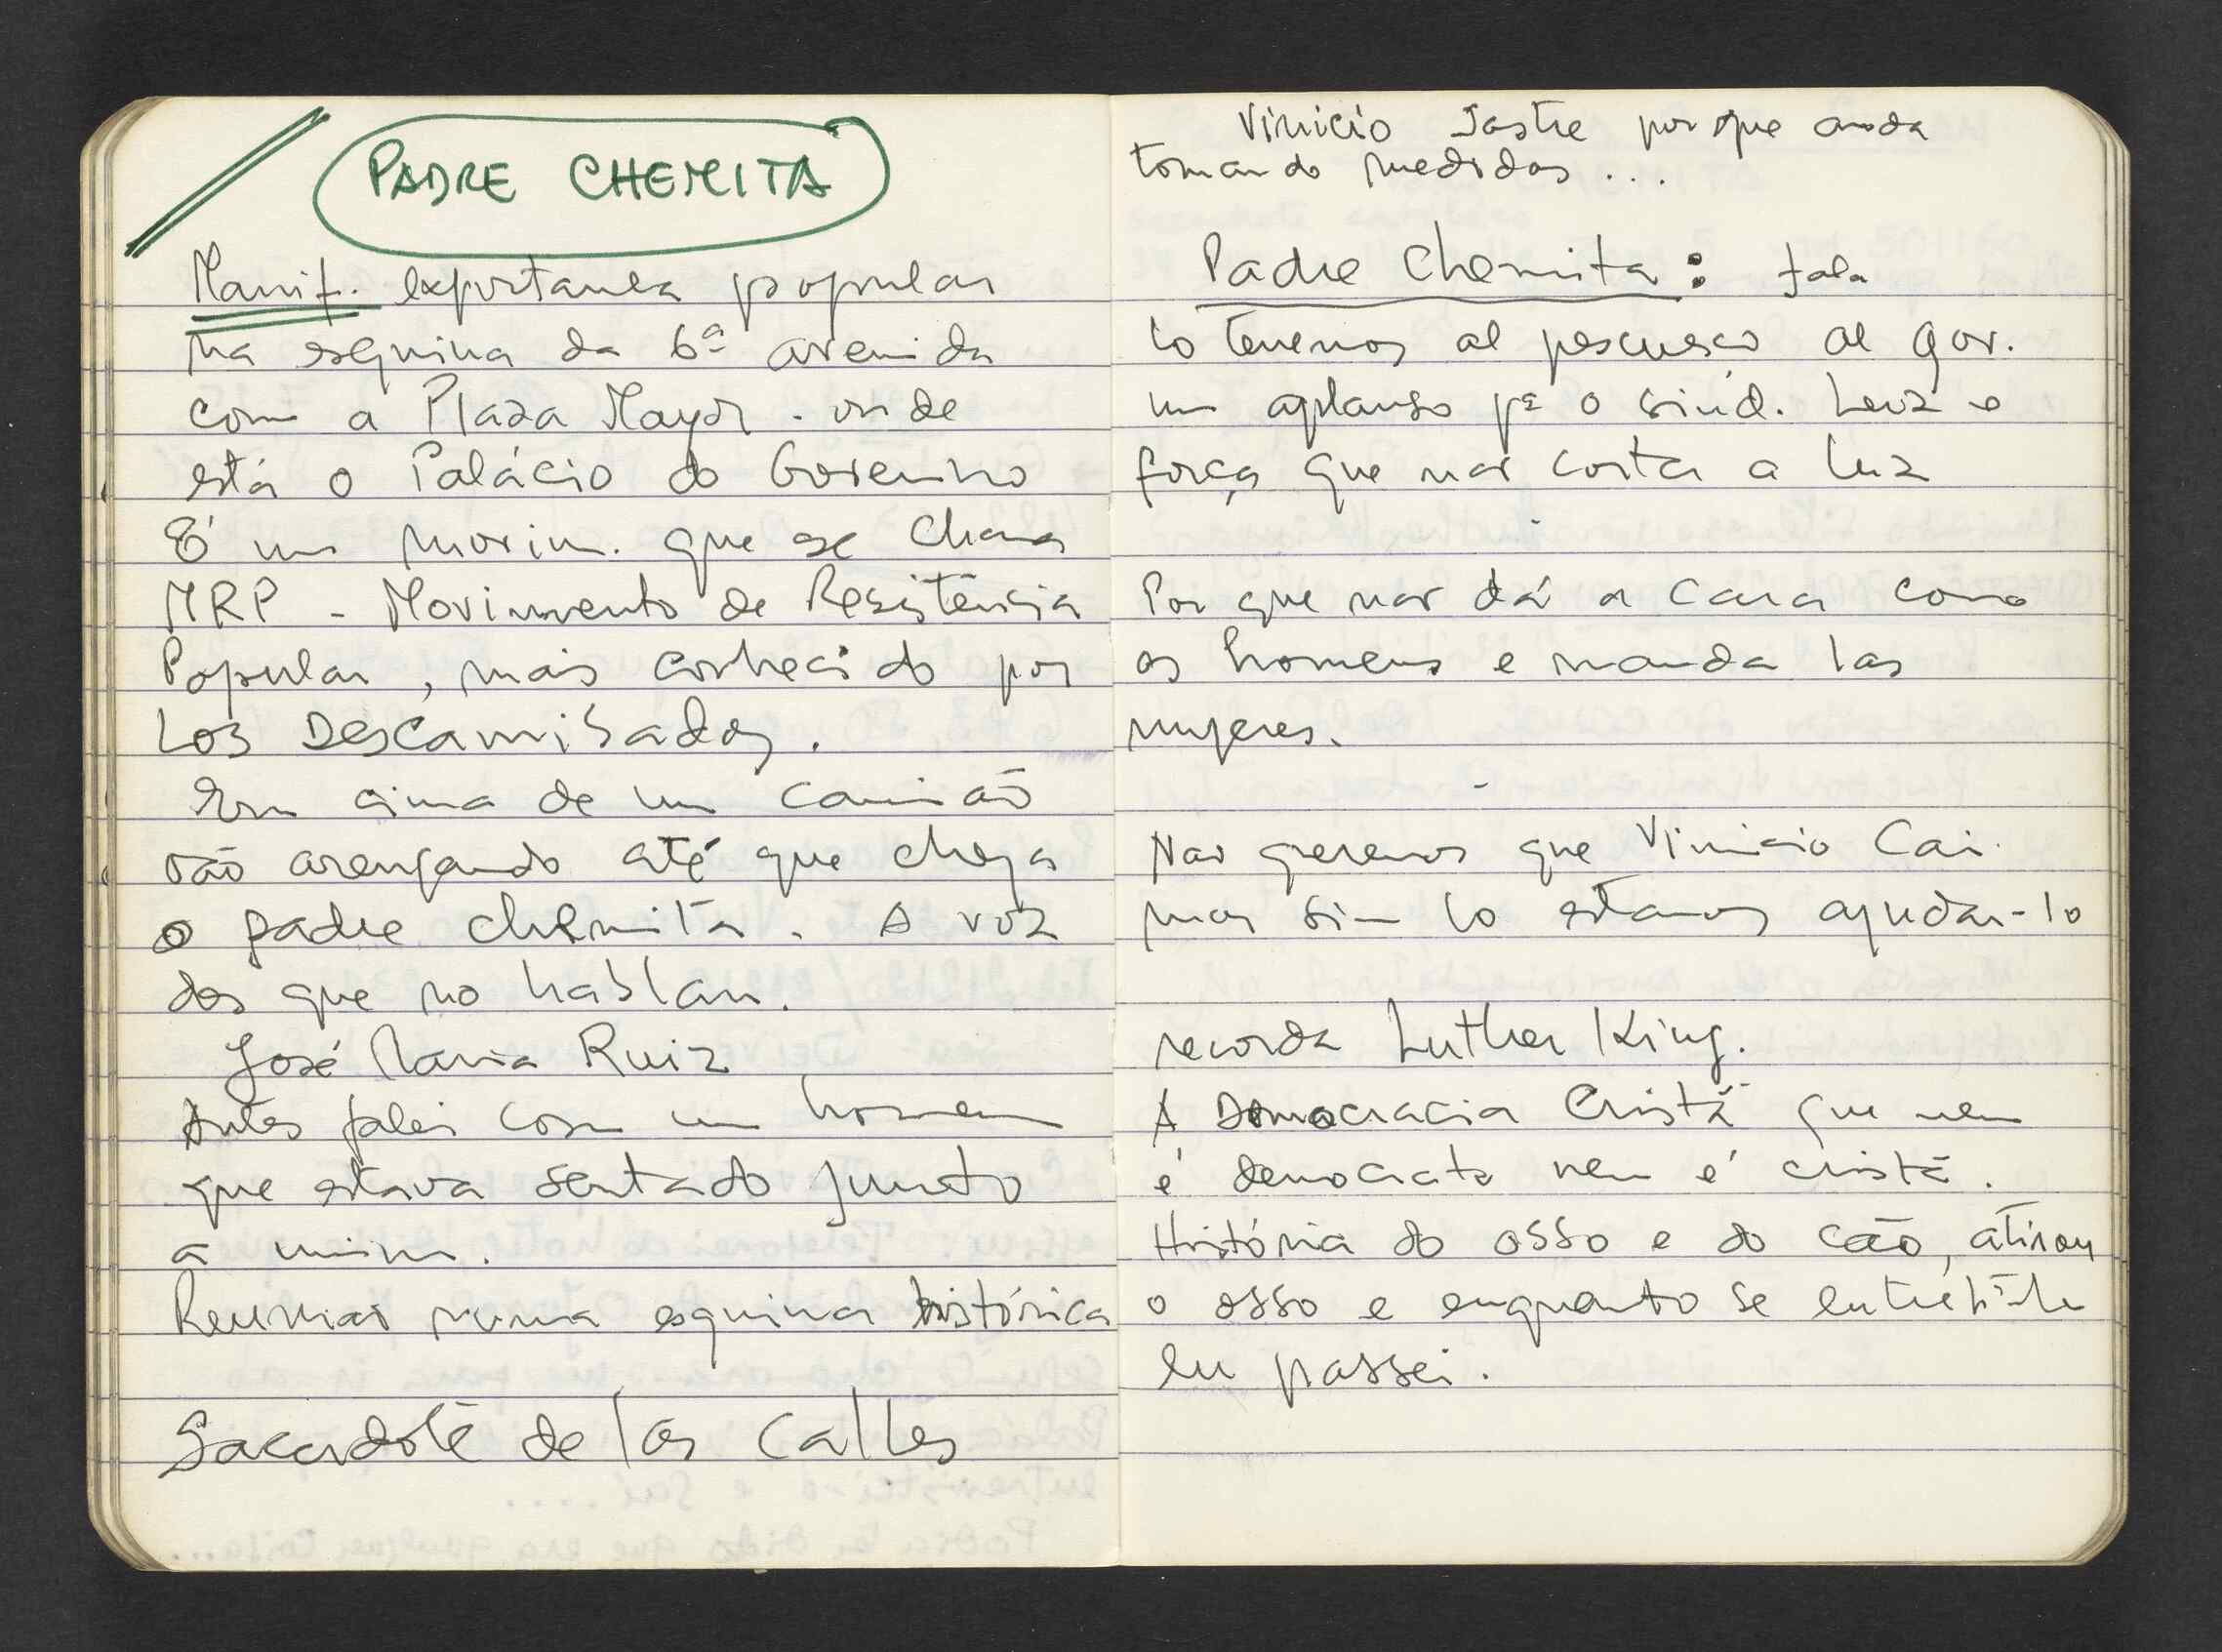 PADRE CHEMITA
Manif. expontanea popular
na esquina da 6ª avenida
com a Plaza Mayor - onde
está o Palácio do Governo
É um movim. que se chama
MRP - Movimento de Resistência
Popular, mais conhecido por
Los Descamisados.
Em cima de um camião
vão arengando até que chega
o padre chemita. A voz
dos que no hablan.
José Maria Ruiz
Antes falei com um homem
que estava sentado junto
a mim.
Reunião numa esquina histórica
Sacerdote de las Calles
Vinicio Sastre porque anda
tomando medidas...
Padre Chemita: fala
lo tenemos al pescuezo al gov.
um aplauso pª o sind. Luz e
força que nao corta a luz
Por que nao dá a cara como
os homens e manda las
mujeres.
Nao queremos que Vinicio Cai
mas sim lo estamos ajudar-lo
recorda Luther King.
A Democracia Cristã que nem
é democrata nem é cristã.
História do osso e do cão, atirou
o osso e enquanto se
eu passei.